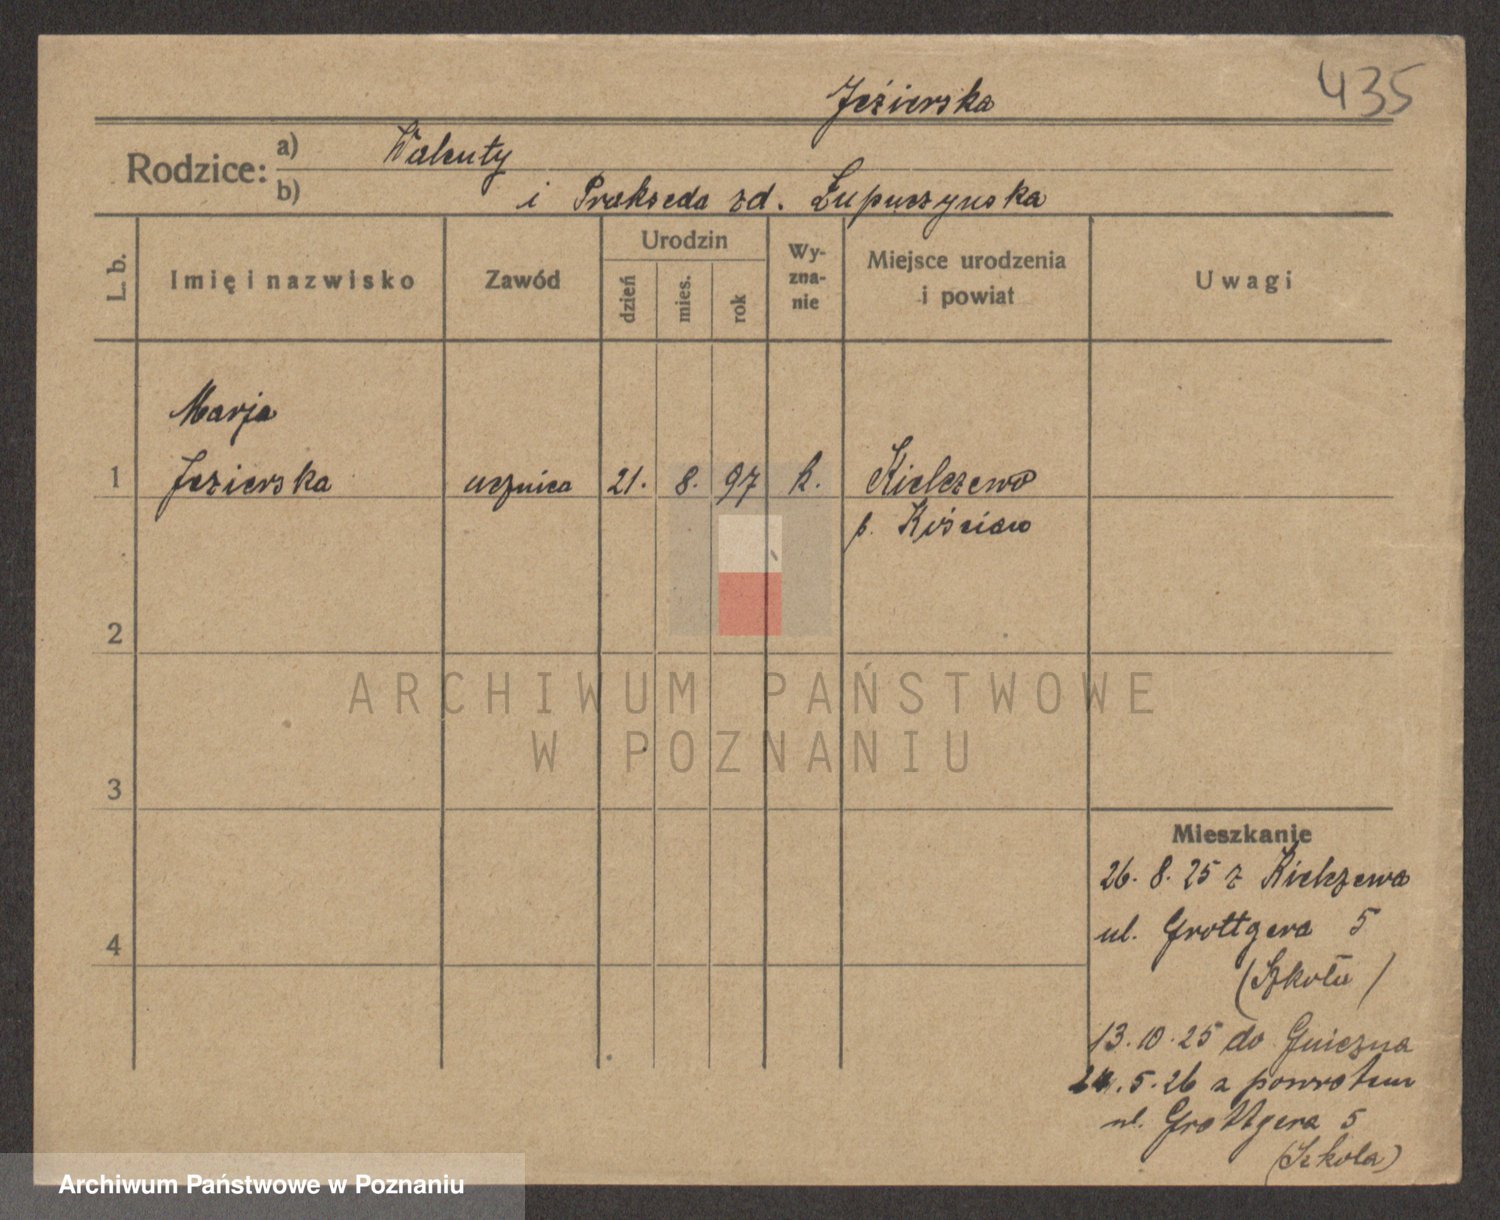 435
Jezierska
Rodzice: a) Walenty
b) i Prakseda zd. Łupuszyńska
L. b.
Imię i nazwisko
Zawód
Urodzin
dzień
mies.
rok
Wy-
zna-
nie
Miejsce urodzenia
i powiat
Uwagi
Marja
1 Jezierska ucznica 21. 8. 97 k. Kielczewo
p. Kościan
2
3
4
Mieszkanie
26. 8. 25 z Kielczewa
ul. Grottgera 5
(Szkoła)
13. 10. 25 do Gniezna
5. 26 z powrotem
ul. Grottgera 5
(Szkoła)
ARCHIWUM PAŃSTWOWE
W POZNANIU
Archiwum Państwowe w Poznaniu